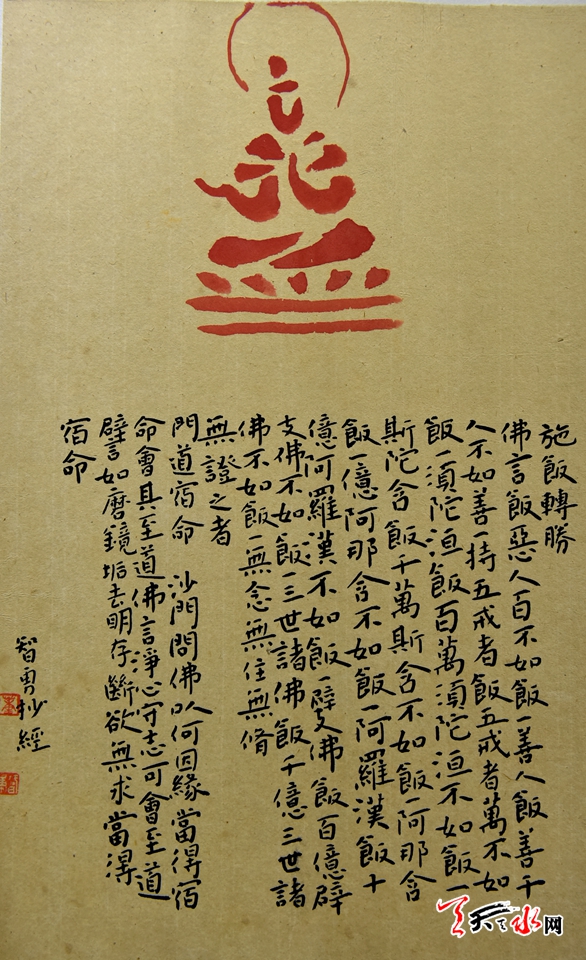 施飯轉勝
佛言飯惡人百不如飯一善人飯善千
人不如善一持五戒者飯五戒者萬不如
飯一須陀洹飯百萬須陀洹不如飯一
斯陀含飯千萬斯含不如飯一阿那含
飯一億阿那含不如飯一阿羅漢飯十
億阿羅漢不如飯一辟支佛飯百億辟
支佛不如飯一三世諸佛飯千億三世諸
佛不如飯一無念無住無脩
無證之者
門道宿命 沙門問佛以何因緣當得宿
命會其至道佛言淨心守志可會至道
譬如磨鏡垢去明存斷欲無求當得
宿命
智勇抄經
天天水网